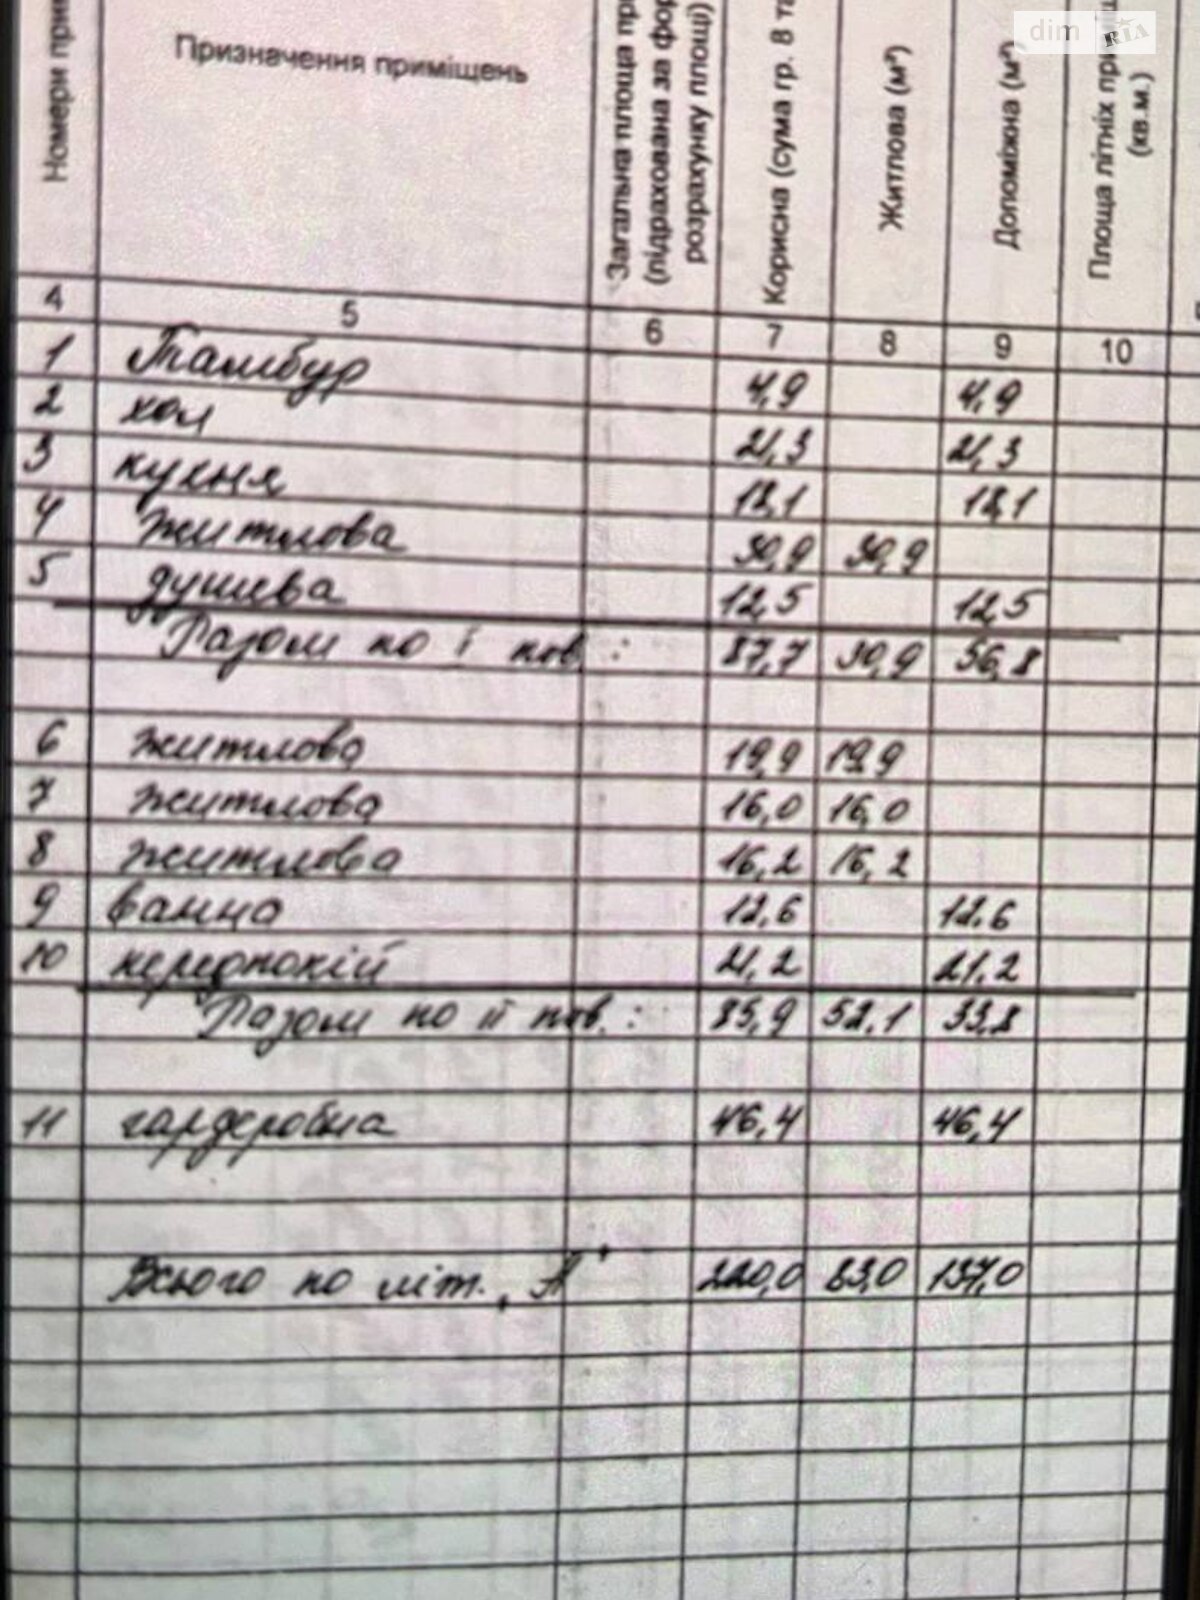 dim RIA
Номери при
Призначення приміщень
Загальна площа пр
(підрахована за фор
розрахунку площі)
Корисна (сума гр. 8 та
Житлова (м²)
Допоміжна (м²)
Площа літніх
(кв.м.)
4 5 6 7 8 9 10
1 Тамбур 4,9 4,9
2 хол 21,3 21,3
3 кухня 18,1 18,1
4 житлова 30,9 30,9
5 душева 12,5 12,5
Разом по І пов. : 87,7 30,9 56,8
6 житлова 19,9 19,9
7 житлова 16,0 16,0
8 житлова 16,2 16,2
9 ванна 12.6 12.6
10 передпокій 21,2 21.2
Разом по ІІ пов. : 85,9 52.1 33.8
11 гардеробна 46,4 46,4
Всього по літ. „А" 220,0 83,0 137,0